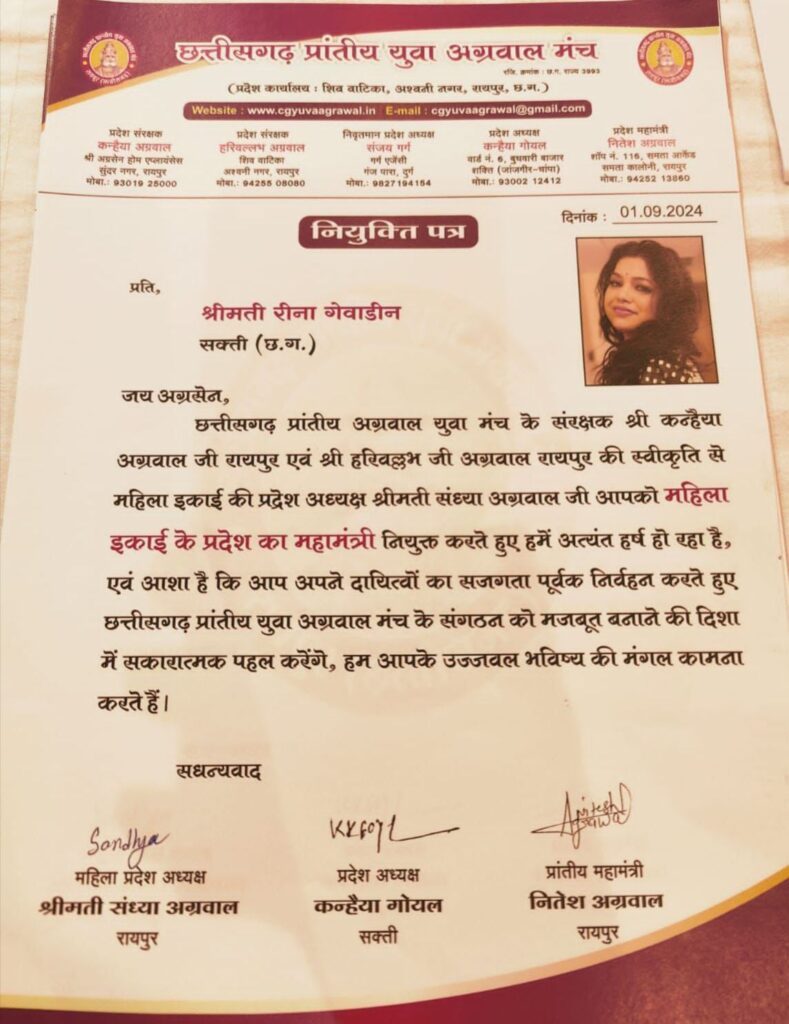 छत्तीसगढ़ प्रांतीय युवा अग्रवाल मंच
रजि. क्रमांक : छ.ग. राज्य 3993
(प्रदेश कार्यालय : शिव वाटिका, अश्वनी नगर, रायपुर, छ.ग.)
Website : www.cgyuvaagrawal.in | E-mail : cgyuvaagrawal@gmail.com
प्रदेश संरक्षक
कन्हैया अग्रवाल
श्री अग्रसेन होम एप्लायंसेस
सुंदर नगर, रायपुर
मोबा.: 93019 25000
प्रदेश संरक्षक
हरिवल्लभ अग्रवाल
शिव वाटिका
अश्वनी नगर, रायपुर
मोबा.: 94255 08080
निवृतमान प्रदेश अध्यक्ष
संजय गर्ग
गर्ग एजेंसी
गंज पारा, दुर्ग
मोबा.: 9827194154
प्रदेश अध्यक्ष
कन्हैया गोयल
वार्ड नं. 6, बुधवारी बाजार
शक्ति (जांजगीर-चांपा)
मोबा.: 93002 12412
प्रदेश महामंत्री
नितेश अग्रवाल
शॉप नं. 116, समता आर्केड
समता कालोनी, रायपुर
मोबा.: 94252 13860
दिनांक : 01.09.2024
नियुक्ति पत्र
प्रति,
श्रीमती रीना गेवाडीन
सक्ती (छ.ग.)
जय अग्रसेन,
छत्तीसगढ़ प्रांतीय अग्रवाल युवा मंच के संरक्षक श्री कन्हैया
अग्रवाल जी रायपुर एवं श्री हरिवल्लभ जी अग्रवाल रायपुर की स्वीकृति से
महिला इकाई की प्रदेश अध्यक्ष श्रीमती संध्या अग्रवाल जी आपको महिला
इकाई के प्रदेश का महामंत्री नियुक्त करते हुए हमें अत्यंत हर्ष हो रहा है,
एवं आशा है कि आप अपने दायित्वों का सजगता पूर्वक निर्वहन करते हुए
छत्तीसगढ़ प्रांतीय युवा अग्रवाल मंच के संगठन को मजबूत बनाने की दिशा
में सकारात्मक पहल करेंगे, हम आपके उज्जवल भविष्य की मंगल कामना
करते हैं।
सधन्यवाद
Sandhya
महिला प्रदेश अध्यक्ष
श्रीमती संध्या अग्रवाल
रायपुर
प्रदेश अध्यक्ष
कन्हैया गोयल
सक्ती
प्रांतीय महामंत्री
नितेश अग्रवाल
रायपुर